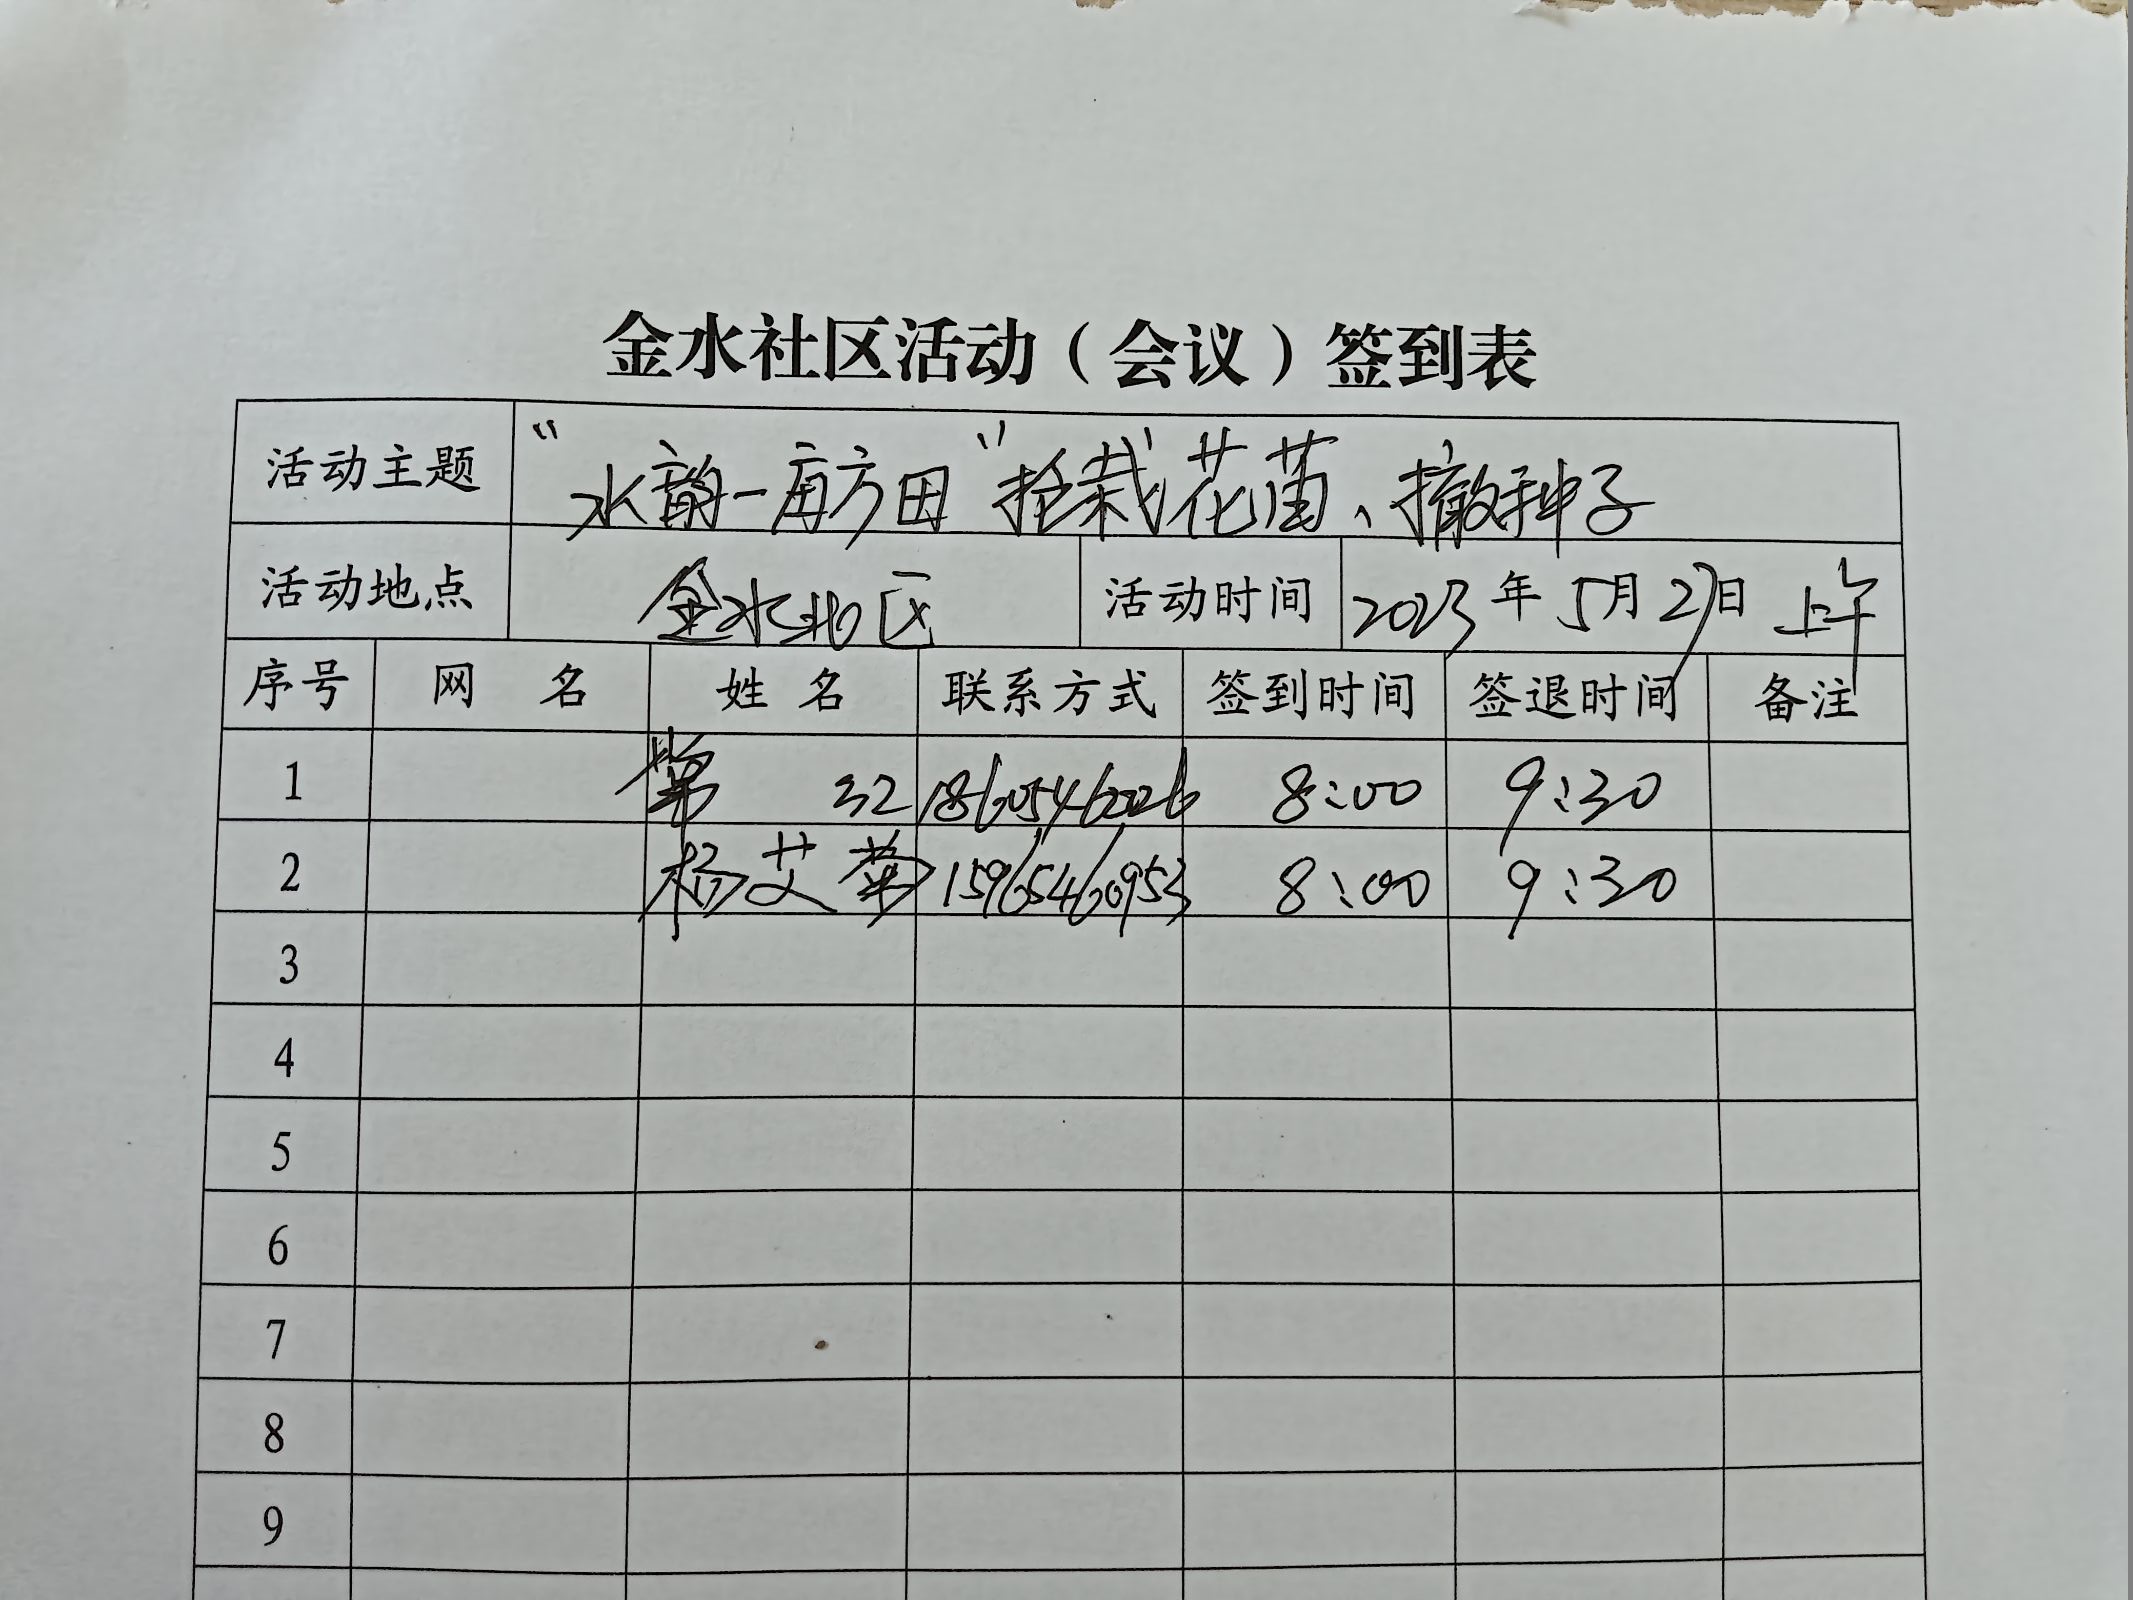 金水社区活动（会议）签到表
活动主题 “水韵一亩方田”抢栽花苗、撒种子
活动地点 金水北区 活动时间 2023年5月27日 上午
序号 网 名 姓 名 联系方式 签到时间 签退时间 备注
1 8:00 9:30
2 杨艾华 15965460953 8:00 9:30
3
4
5
6
7
8
9